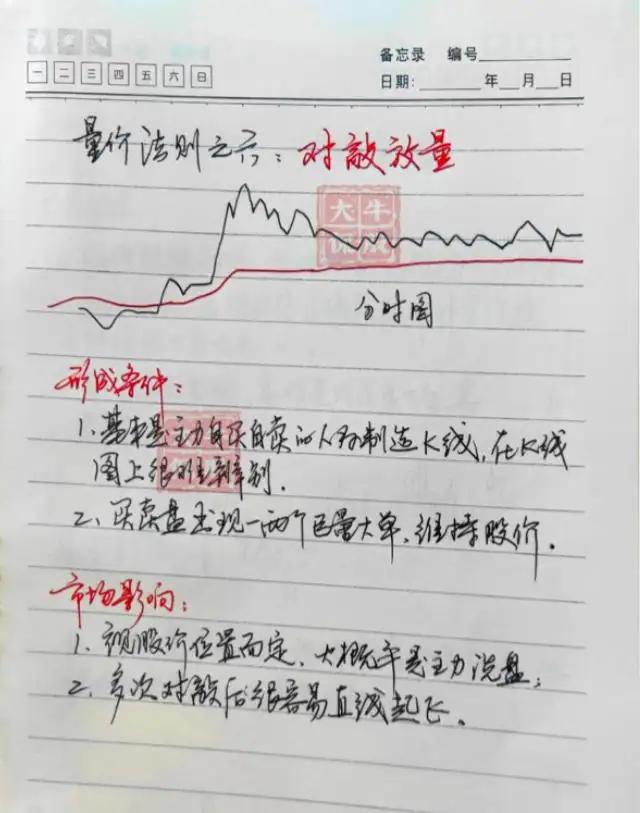 备忘录 编号
一 二 三 四 五 六 日
日期: 年 月 日
量价法则之六：对敲放量
大牛
分时图
形成条件：
1、基本是主力自买自卖的人为制造K线，在K线
图上很难辨别.
2、买卖盘出现一两个巨量大单，维持股价.
市场影响：
1、视股价位置而定，大概率是主力洗盘；
2、多次对敲后很容易直线起飞.